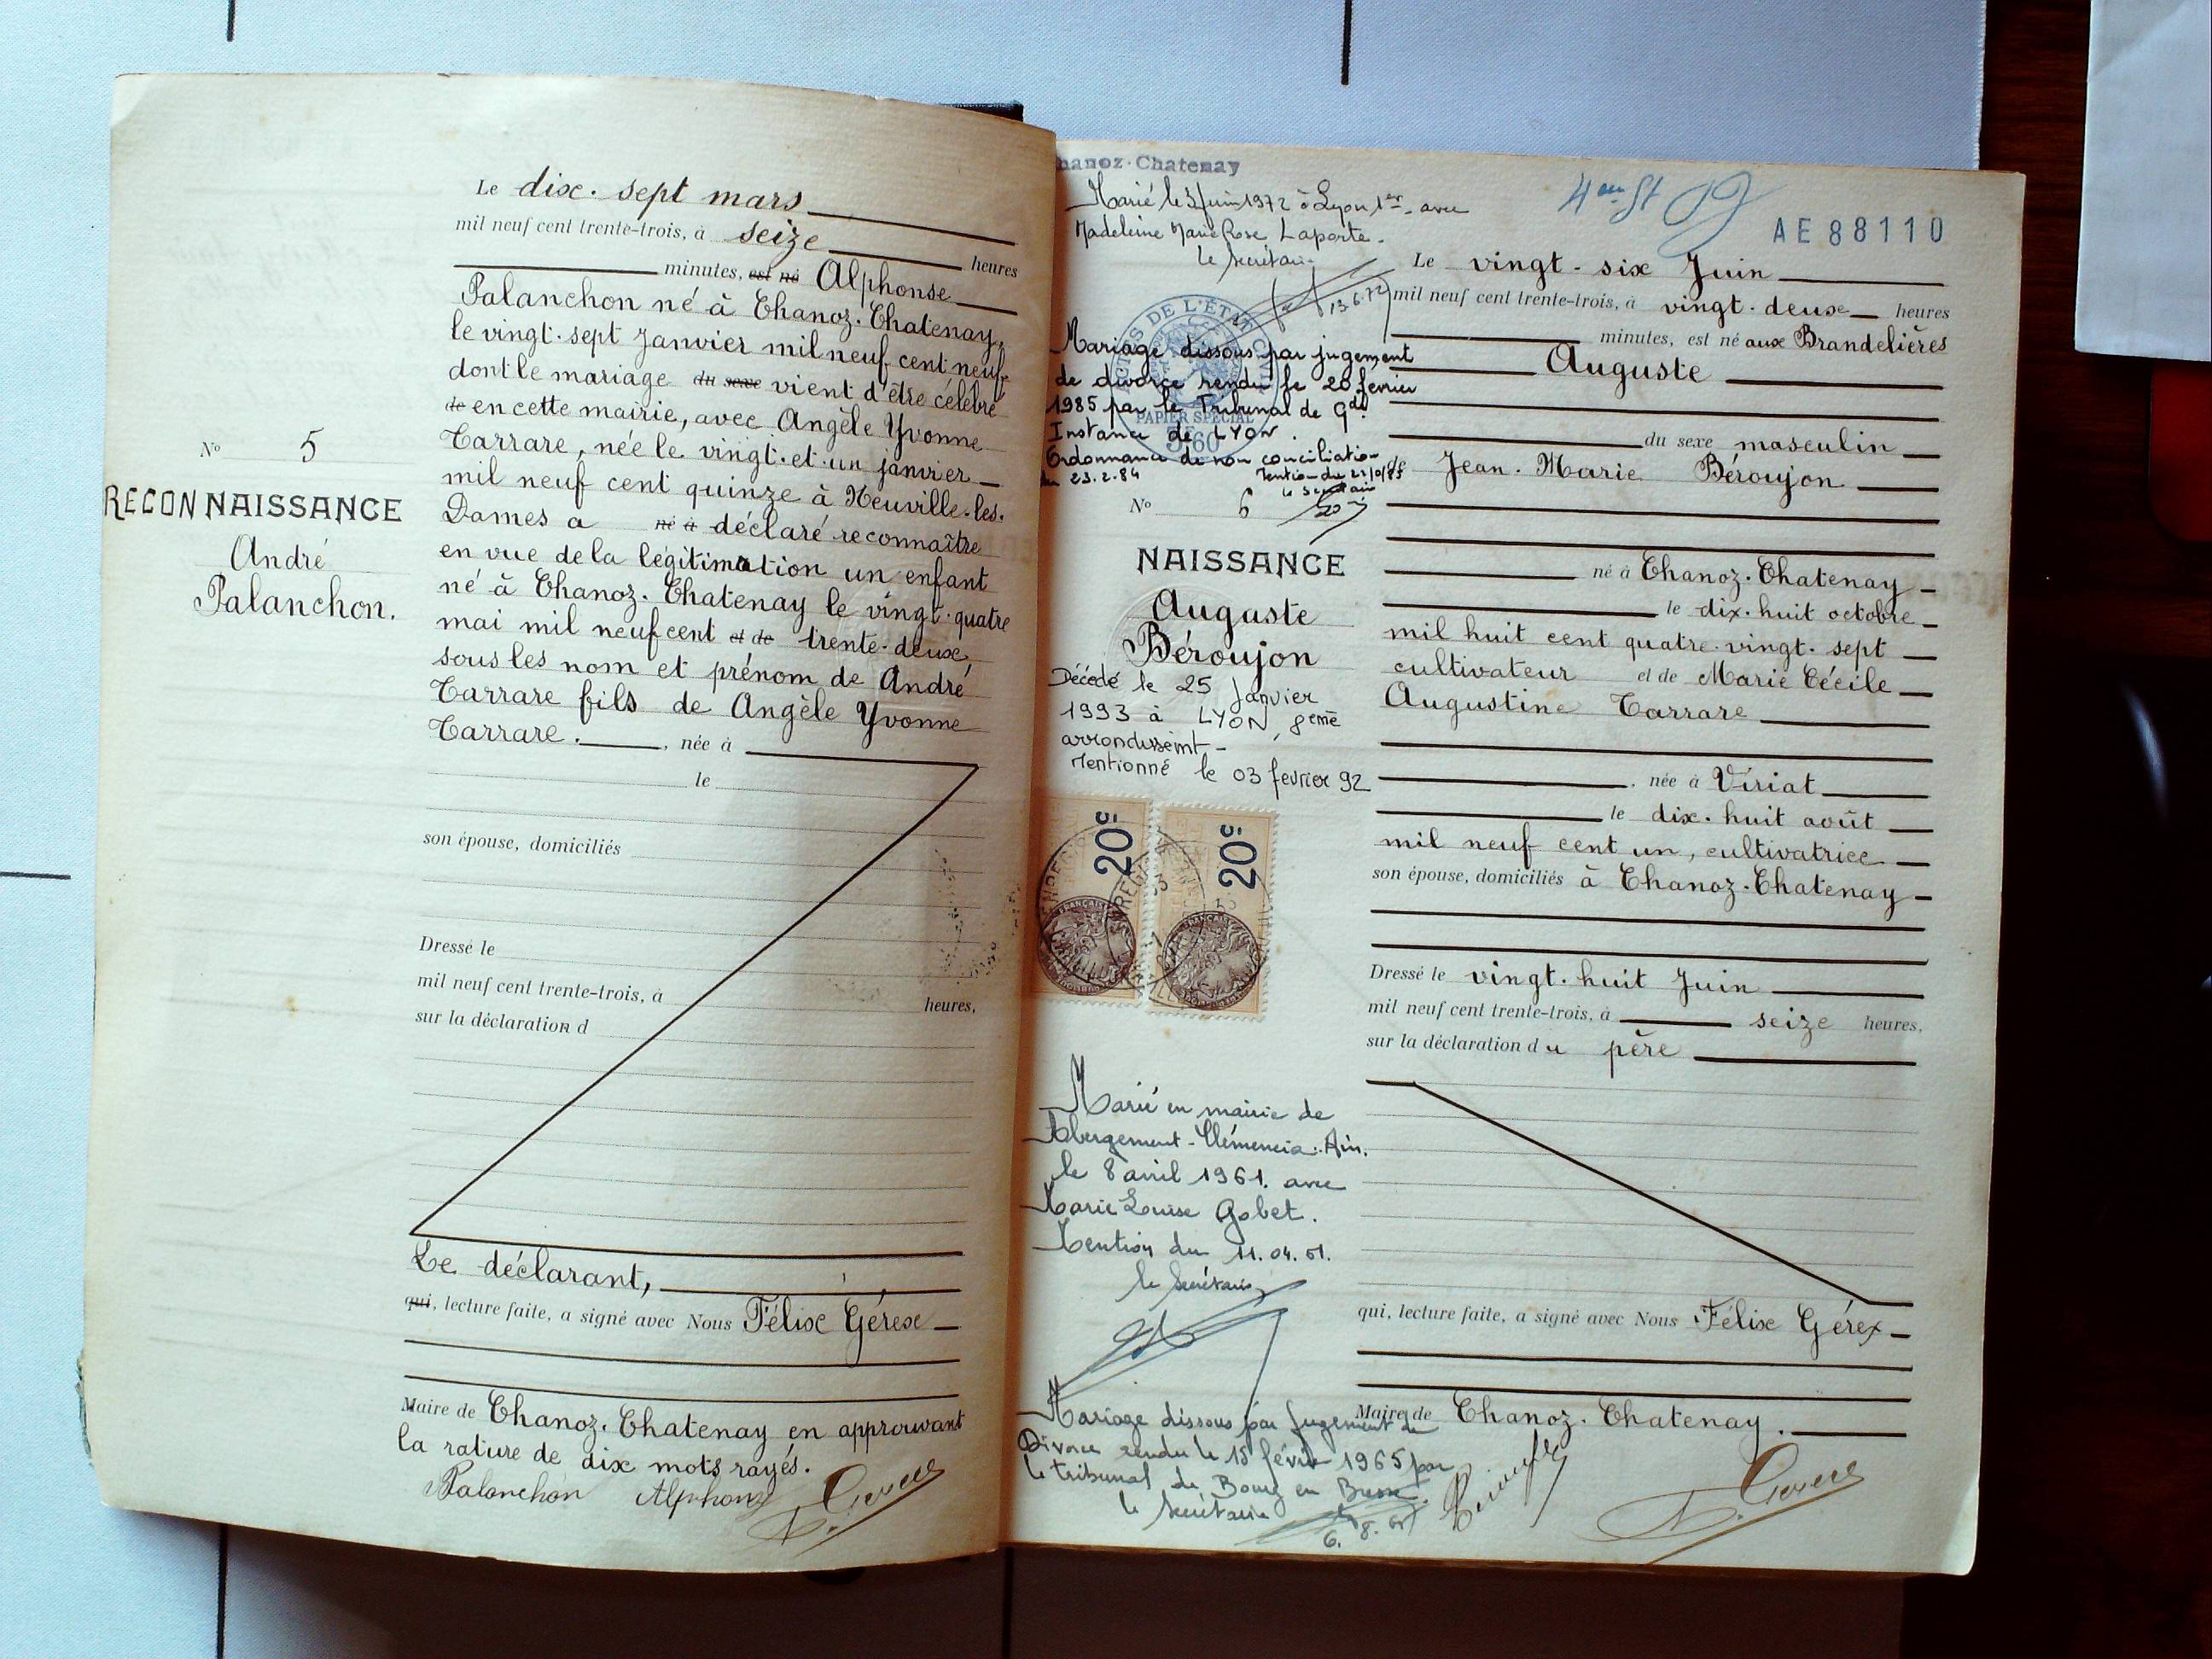 Le dix-sept mars
mil neuf cent trente-trois, à seize heures
minutes, est né Alphonse
Palanchon né à Chanoz-Chatenay,
le vingt-sept Janvier mil neuf cent neuf
dont le mariage du sexe vient d'être célébré
de en cette mairie, avec Angèle Yvonne
Carrare, née le vingt-et-un janvier
mil neuf cent quinze à Neuville-les-
Dames a né à déclaré reconnaître
en vue de la légitimation un enfant
né à Chanoz-Chatenay le vingt-quatre
mai mil neuf cent et de trente-deux,
sous les nom et prénom de André
Carrare fils de Angèle Yvonne
Carrare. , née à
le
son épouse, domiciliés
Dressé le
mil neuf cent trente-trois, à heures,
sur la déclaration d
Le déclarant,
qui, lecture faite, a signé avec Nous Félix Gérex
Maire de Chanoz-Chatenay en approuvant
la rature de dix mots rayés.
Palanchon Alphonse
No 5
RECONNAISSANCE
André
Palanchon.
hanoz-Chatenay
Marié le 3 Juin 1972 à Lyon 1er, avec
Madeleine Marie Rose Laporte.
le Secrétaire
13.6.72
Mariage dissous par jugement
de divorce rendu le 20 février
1985 par le Tribunal de Gde
Instance de LYON.
Ordonnance de non conciliation
du 23.2.84
le Secrétaire
PAPIER SPÉCIAL
No 6
NAISSANCE
Auguste
Béroujon
Décédé le 25 Janvier
1993 à LYON, 8eme
arrondissemt-
Mentionné le 03 février 92
20c
20c
Marié en mairie de
Abergement-Clémencia-Ain.
le 8 avril 1961. avec
Marie Louise Gobet.
Mention du 11.04.61.
le Secrétaire
Mariage dissous par Jugement de
Divorce rendu le 15 février 1965 par
le tribunal de Bourg en Bresse.
le Secrétaire
AE 88110
Le vingt-six Juin
mil neuf cent trente-trois, à vingt-deux heures
minutes, est né aux Brandelières
Auguste
du sexe masculin
Jean-Marie Béroujon
né à Chanoz-Chatenay
le dix-huit octobre
mil huit cent quatre-vingt-sept
cultivateur et de Marie Cécile
Augustine Carrare
. née à Viriat
le dix-huit août
mil neuf cent un, cultivatrice
son épouse, domiciliés à Chanoz-Chatenay
Dressé le vingt-huit Juin
mil neuf cent trente-trois, à seize heures,
sur la déclaration du père
qui, lecture faite, a signé avec Nous Félix Gérex
Maire de Chanoz-Chatenay.